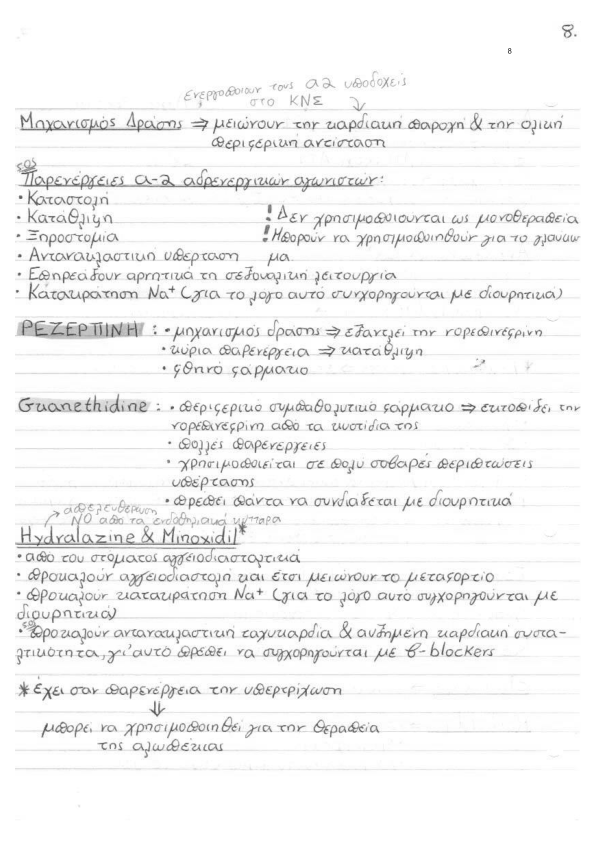 8.
8
ενεργοποιούν τους α2 υποδοχείς
στο ΚΝΣ
Μηχανισμός Δράσης ⇒ μειώνουν την καρδιακή παροχή & την ολική
περιφερική αντίσταση
SOS
Παρενέργειες α-2 αδρενεργικών αγωνιστών:
• Καταστολή
• Κατάθλιψη ! Δεν χρησιμοποιούνται ως μονοθεραπεία
• Ξηροστομία ! Μπορούν να χρησιμοποιηθούν για το γλαύκω
• Αντανακλαστική υπέρταση μα
• Επηρεάζουν αρνητικά τη σεξουαλική λειτουργία
• Κατακράτηση Na⁺ (για το λόγο αυτό συγχορηγούνται με διουρητικά)
ΡΕΖΕΡΠΙΝΗ : • μηχανισμός δράσης ⇒ εξαντλεί την νορεπινεφρίνη
• κύρια παρενέργεια ⇒ κατάθλιψη
• φθηνό φάρμακο
Guanethidine : • περιφερικό συμπαθολυτικό φάρμακο ⇒ εκτοπίζει την
νορεπινεφρίνη από τα κυστίδια της
• πολλές παρενέργειες
• χρησιμοποιείται σε πολύ σοβαρές περιπτώσεις
υπέρτασης
• πρέπει πάντα να συνδιάζεται με διουρητικά
→ απελευθέρωση
ΝΟ από τα ενδοθηλιακά κύτταρα
Hydralazine & Minoxidil*
• από του στόματος αγγειοδιασταλτικά
• προκαλούν αγγειοδιαστολή και έτσι μειώνουν το μεταφορτίο
• προκαλούν κατακράτηση Na⁺ (για το λόγο αυτό συγχορηγούνται με
διουρητικά)
SOS
• προκαλούν αντανακλαστική ταχυκαρδία & αυξημένη καρδιακή συστα-
λτικότητα, γι'αυτό πρέπει να συγχορηγούνται με β-blockers
* έχει σαν παρενέργεια την υπερτρίχωση
⇓
μπορεί να χρησιμοποιηθεί για την θεραπεία
της αλωπεκίας